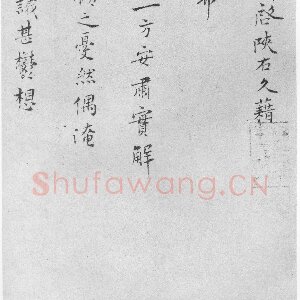 啓陝右久藉
一方安肅實解
之憂然偶淹
甚鬱想
Shufawang.CN